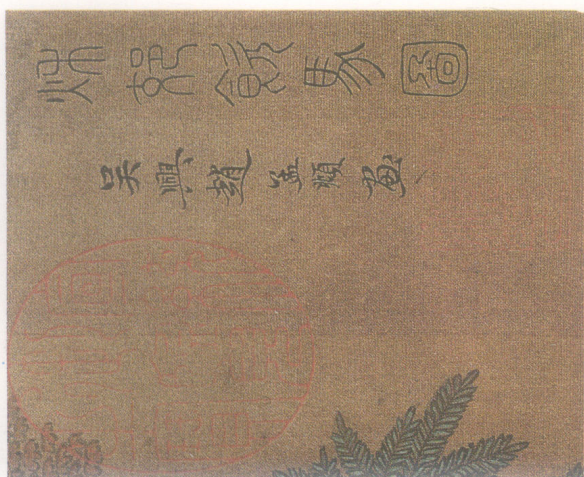 秋郊飲馬圖
吳興趙孟頫畫